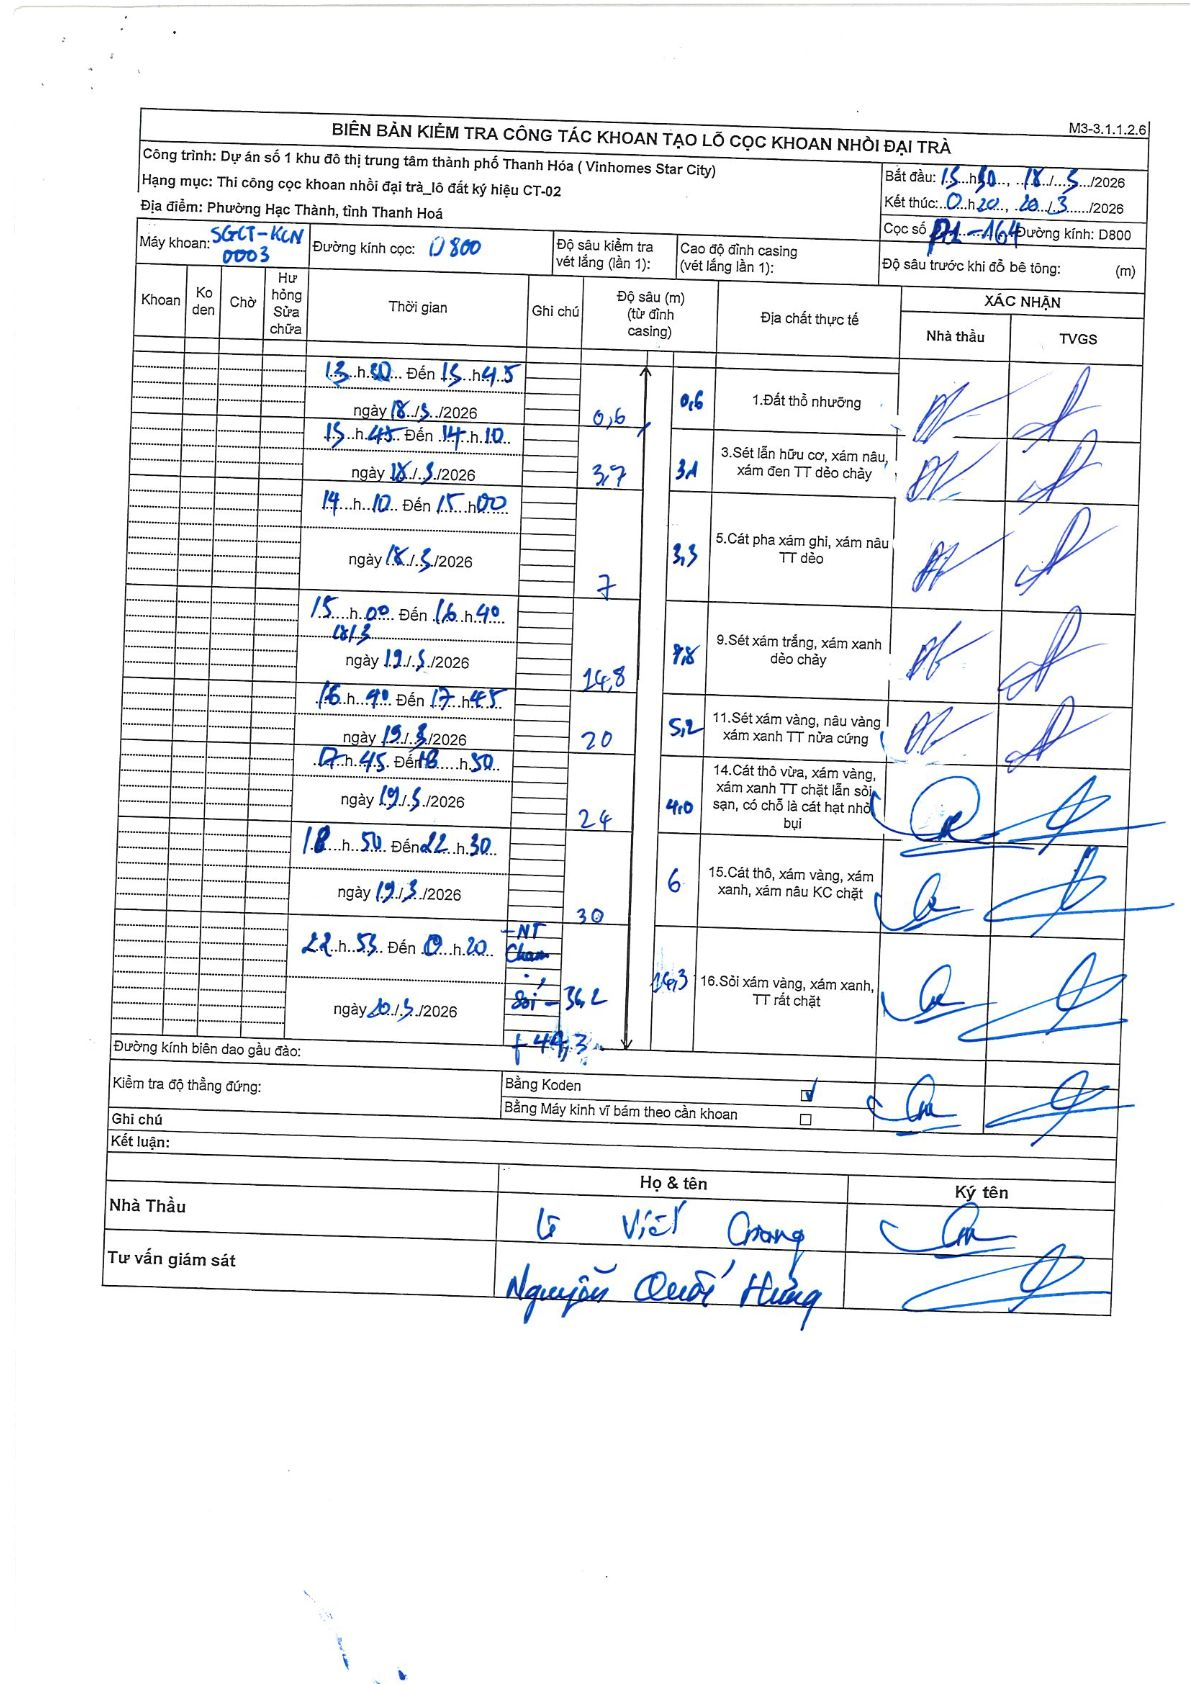 M3-3.1.1.2.6
BIÊN BẢN KIỂM TRA CÔNG TÁC KHOAN TẠO LỖ CỌC KHOAN NHỒI ĐẠI TRÀ
Công trình: Dự án số 1 khu đô thị trung tâm thành phố Thanh Hóa ( Vinhomes Star City)
Hạng mục: Thi công cọc khoan nhồi đại trà_lô đất ký hiệu CT-02
Địa điểm: Phường Hạc Thành, tỉnh Thanh Hoá
Bắt đầu: 13.h30..., ..18../...3.../2026
Kết thúc:..0..h20.., ..20../.3....../2026
Cọc số P1-164 Đường kính: D800
Máy khoan: SGCT-KCN 0003
Đường kính cọc: D800
Độ sâu kiểm tra vét lắng (lần 1):
Cao độ đỉnh casing (vét lắng lần 1):
Độ sâu trước khi đổ bê tông: (m)
Khoan Ko đen Chờ Hư hỏng Sửa chữa Thời gian Ghi chú Độ sâu (m) (từ đỉnh casing) Địa chất thực tế XÁC NHẬN
Nhà thầu TVGS
13...h.30... Đến 13...h45
ngày 18../.3../2026 0,6 0,6 1.Đất thổ nhưỡng
13..h..45.. Đến .14..h.10..
ngày 18../.3./2026 3,7 3,1 3.Sét lẫn hữu cơ, xám nâu, xám đen TT dẻo chảy
14....h...10... Đến 15..h00
ngày 18./.3./2026 7 3,3 5.Cát pha xám ghi, xám nâu TT dẻo
15....h.00. Đến .16..h.40
18/3
ngày 19./.3./2026 14,8 7,8 9.Sét xám trắng, xám xanh dẻo chảy
16..h...40. Đến 17..h45
ngày 19./.3./2026 20 5,2 11.Sét xám vàng, nâu vàng xám xanh TT nửa cứng
17..h.45. Đến18.....h.50
ngày 19./.3./2026 24 4,0 14.Cát thô vừa, xám vàng, xám xanh TT chặt lẫn sỏi sạn, có chỗ là cát hạt nhỏ bụi
18...h..50 Đến22..h.30.
ngày 19./.3./2026 30 6 15.Cát thô, xám vàng, xám xanh, xám nâu KC chặt
22..h..53.. Đến 0...h..20..
-NT Chạm
sỏi - 36,2
ngày20../.3./2026 14,3 16.Sỏi xám vàng, xám xanh, TT rất chặt
44,3
Đường kính biên dao gầu đào:
Kiểm tra độ thẳng đứng:
Bằng Koden
Bằng Máy kinh vĩ bám theo cần khoan
Ghi chú
Kết luận:
Họ & tên Ký tên
Nhà Thầu Lê Viết
Tư vấn giám sát Nguyễn Quốc Hưng